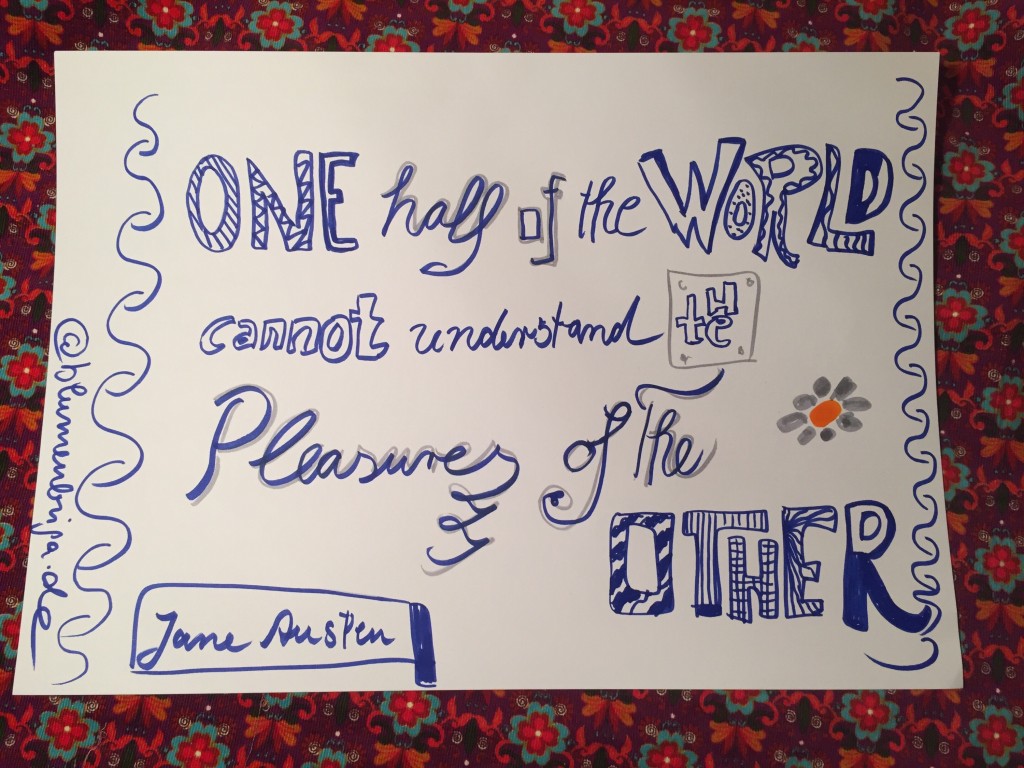 ONE half of the WORLD
cannot understand the
Pleasures of The
OTHER
Jane Austen
@blumenbinja.de